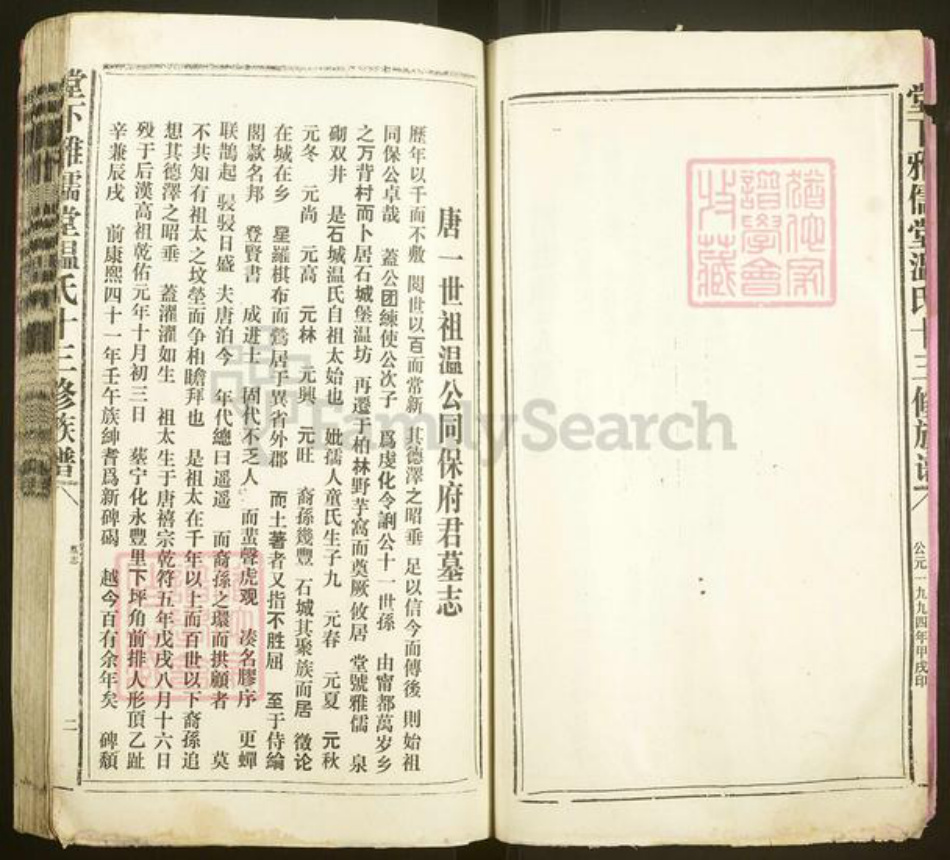 堂下雅儒堂温氏十三修族谱
公元一九九四年甲戌印
猶他家譜學會收藏
唐一世祖温公同保府君墓志
歷年以千而不敷 閱世以百而常新 其德澤之昭垂 足以信今而傳後 則始祖
同保公卓哉 蓋公團練使公次子 爲虔化令詗公十一世孫 由甯都萬岁乡
之万背村而卜居石城堡温坊 再遷于柏林野芋窩而奠厥攸居 堂號雅儒 泉
砌双井 是石城温氏自祖太始也 妣孺人童氏生子九 元春 元夏 元秋
元冬 元尚 元高 元林 元興 元旺 裔孫幾豐 石城其聚族而居 徵论
在城在乡 星羅棋布而鶯居于異省外郡 而土著者又指不胜屈 至于侍綸
閣款名邦 登賢書 成进士 固代不乏人 而蜚聲虎观 湊名膠序 更蟬
联鹊起 駸駸日盛 夫唐泊今 年代總曰遥遥 而裔孫之環而拱顧者 莫
不共知有祖太之坟塋而争相瞻拜也 是祖太在千年以上而百世以下裔孫追
想其德澤之昭垂 蓋濯濯如生 祖太生于唐禧宗乾符五年戊戌八月十六日
殁于后漢高祖乾佑元年十月初三日 墓宁化永豐里下坪角前排人形頂乙趾
辛兼辰戌 前康熙四十一年壬午族紳耆爲新碑碣 越今百有余年矣 碑頹
堂下雅儒堂温氏十三修族譜
墓志
二
FamilySearch